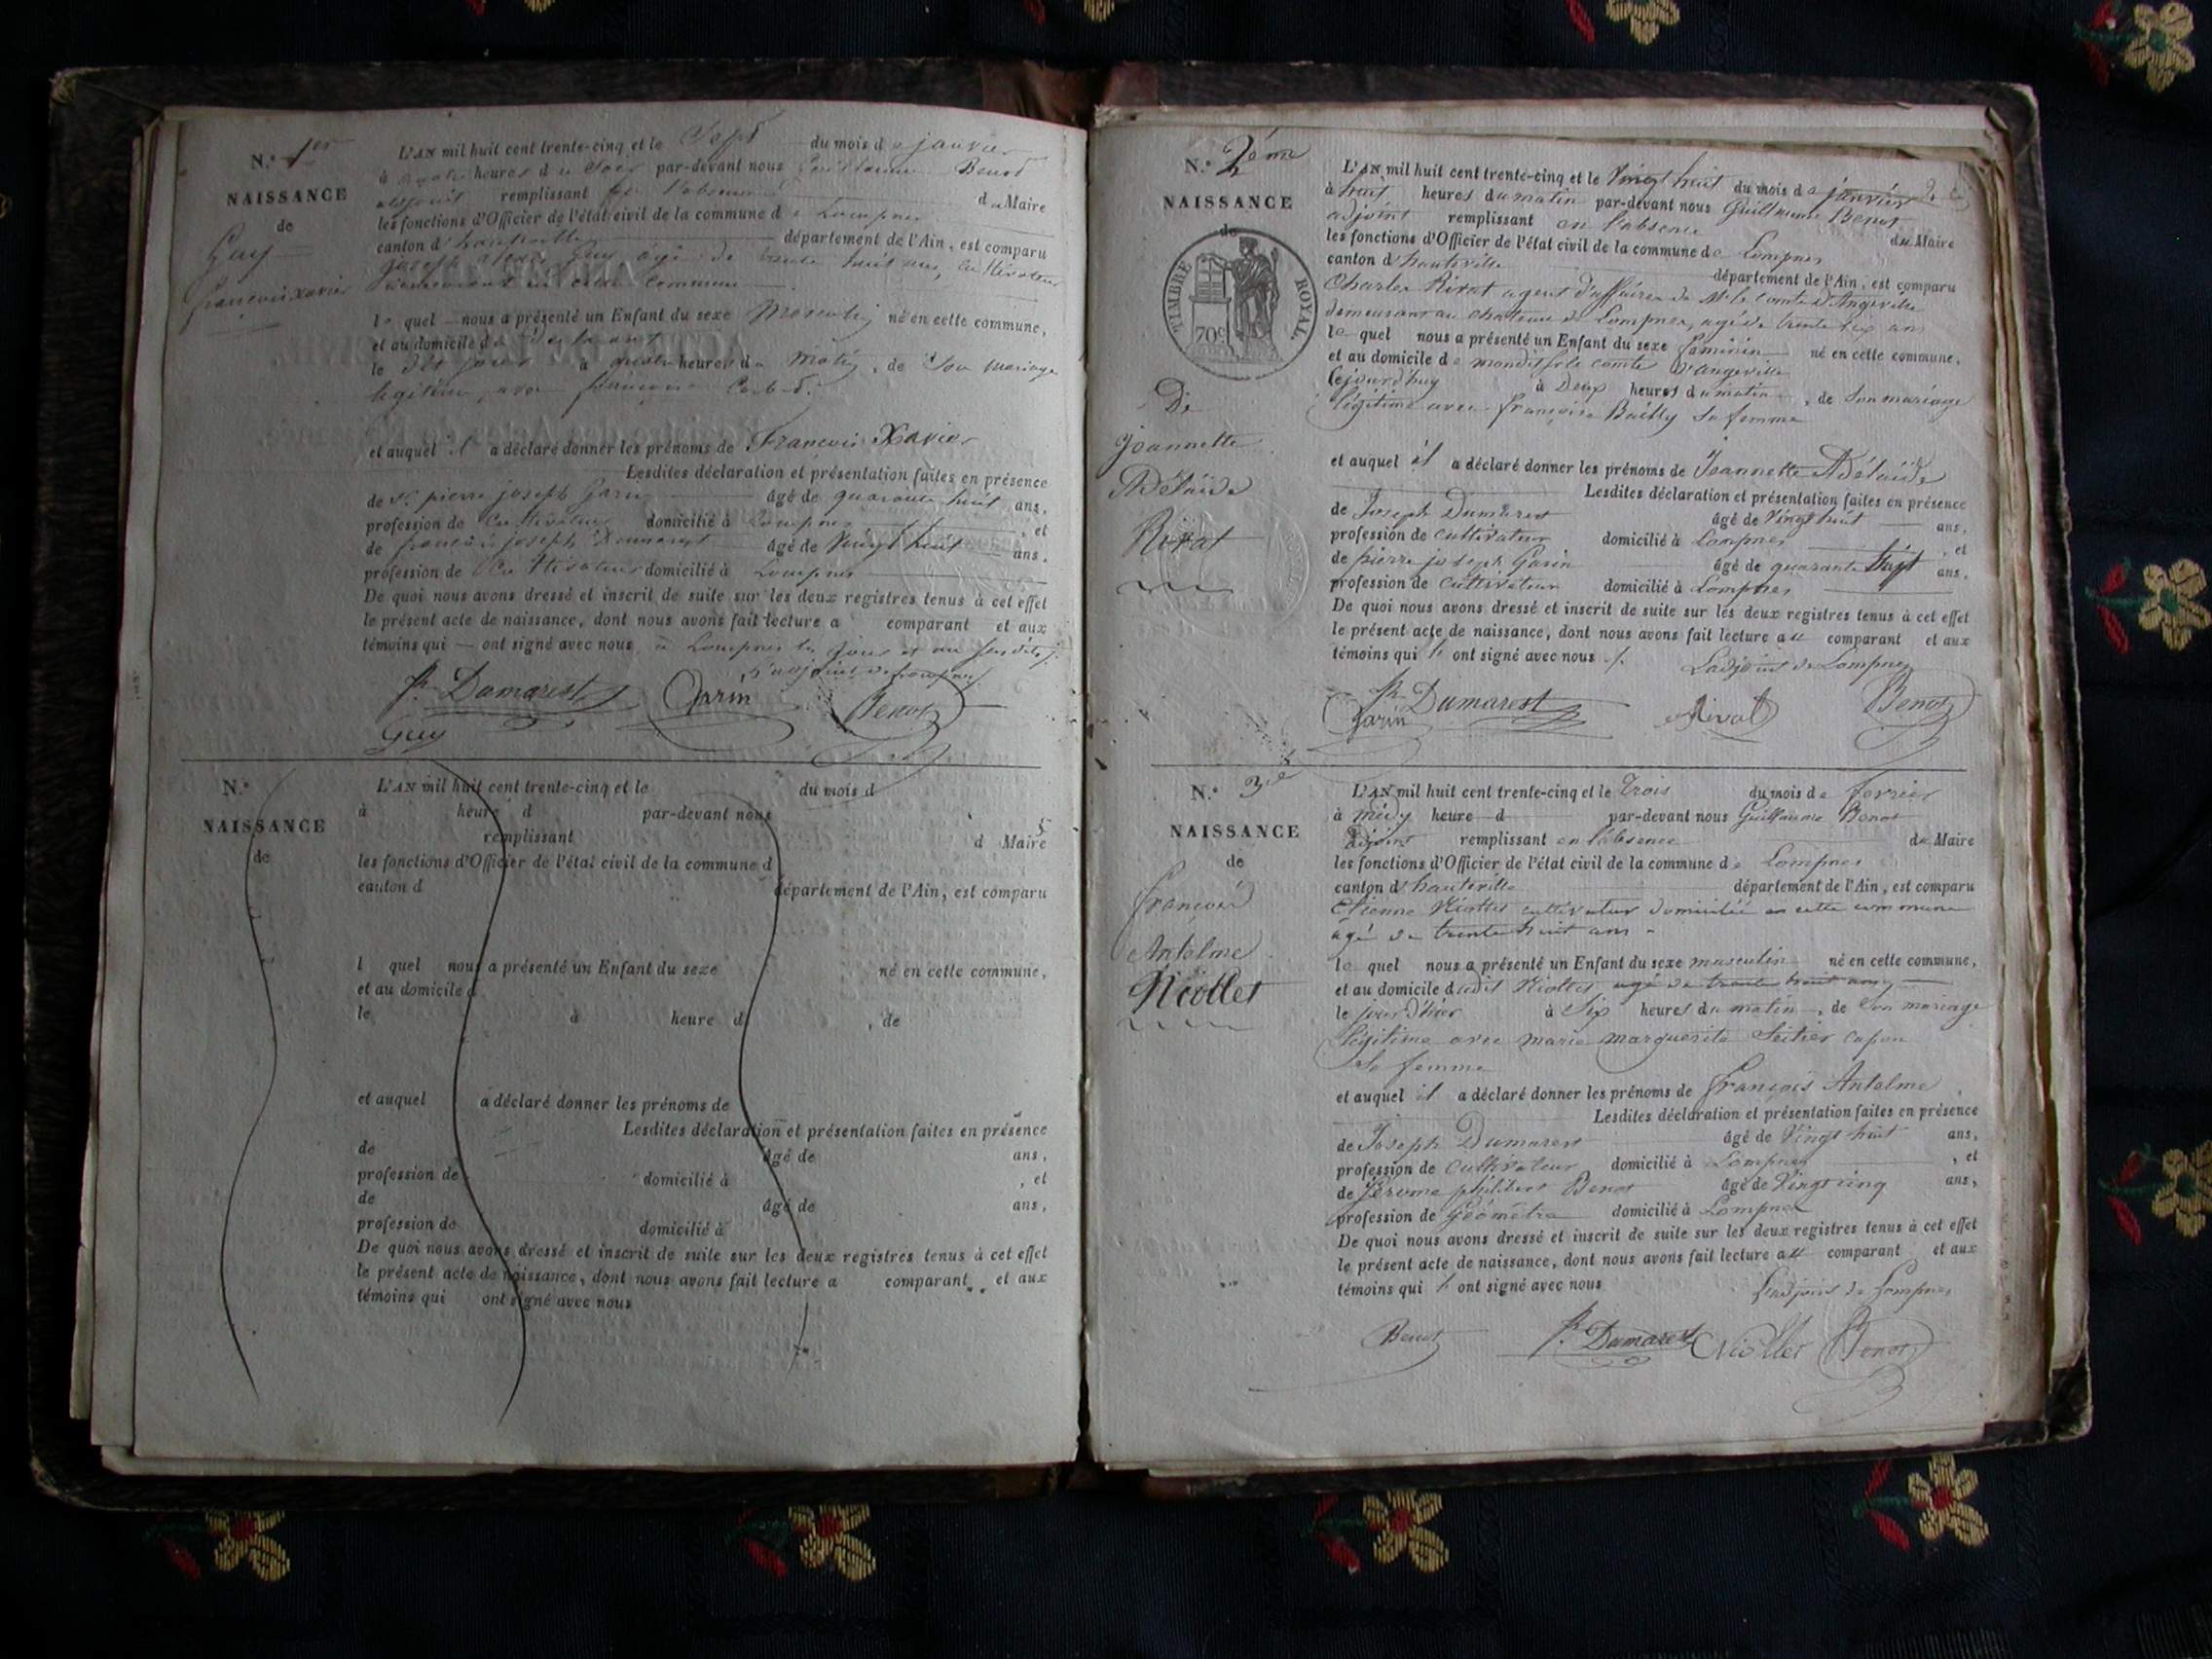 N.° 1er
NAISSANCE
de
Guy
françois xavier
L'AN mil huit cent trente-cinq et le Sept du mois de janvier
à heures du Soir par-devant nous Guillaume Benod
adjoint remplissant par l'absence du Maire
les fonctions d'Officier de l'état civil de la commune de Lompnes
canton d'hauteville département de l'Ain, est comparu
joseph Guy âgé de trente huit ans, cultivateur
demeurant en cette Commune
le quel nous a présenté un Enfant du sexe Masculin né en cette commune,
et au domicile du Déclarant
le dit jour à quatre heures du Matin, de Son Mariage
légitime avec françoise
et auquel il a déclaré donner les prénoms de François Xavier
Lesdites déclaration et présentation faites en présence
de Sr. pierre joseph Garin âgé de quarante huit ans,
profession de Cultivateur domicilié à Lompnes, et
de françois joseph Dumarest âgé de Vingt huit ans,
profession de Cultivateur domicilié à Lompnes
De quoi nous avons dressé et inscrit de suite sur les deux registres tenus à cet effet
le présent acte de naissance, dont nous avons fait lecture a comparant et aux
témoins qui ont signé avec nous, à Lompnes les jour et an susdits
L'adjoint de Lompnes
Jh. Dumarest Garin Benod
Guy
N.°
NAISSANCE
de
L'AN mil huit cent trente-cinq et le du mois d
à heure d par-devant nous
remplissant d Maire
les fonctions d'Officier de l'état civil de la commune d
canton d département de l'Ain, est comparu
l quel nous a présenté un Enfant du sexe né en cette commune,
et au domicile d
le à heure d , de
et auquel a déclaré donner les prénoms de
Lesdites déclaration et présentation faites en présence
de âgé de ans,
profession de domicilié à , et
de âgé de ans,
profession de domicilié à
De quoi nous avons dressé et inscrit de suite sur les deux registres tenus à cet effet
le présent acte de naissance, dont nous avons fait lecture a comparant et aux
témoins qui ont signé avec nous
N.° 2éme
NAISSANCE
de
TIMBRE ROYAL
70c
De
Joannette
Adélaïde
Rivat
L'AN mil huit cent trente-cinq et le Vingt huit du mois de janvier
à huit heures du matin par-devant nous Guillaume Benot
adjoint remplissant en l'absence du Maire
les fonctions d'Officier de l'état civil de la commune de Lompnes
canton d'hauteville département de l'Ain, est comparu
Charles Rivat agent d'affaires de Mr le Comte d'Angeville
demeurant au chateau de Lompnes, agé de trente six ans
le quel nous a présenté un Enfant du sexe féminin né en cette commune,
et au domicile de mondit Sr le comte D'angeville
Cejourd'huy à Deux heures du matin, de Son mariage
légitime avec françoise Bailly Sa femme
et auquel il a déclaré donner les prénoms de Jeannette Adélaïde
Lesdites déclaration et présentation faites en présence
de Joseph Dumarest âgé de Vingt huit ans,
profession de cultivateur domicilié à Lompnes, et
de pierre joseph Garin âgé de quarante huit ans,
profession de cultivateur domicilié à Lompnes
De quoi nous avons dressé et inscrit de suite sur les deux registres tenus à cet effet
le présent acte de naissance, dont nous avons fait lecture au comparant et aux
témoins qui ont signé avec nous. Ladjoint de Lompnes
Jh. Dumarest
Garin Rivat Benot
N.° 3e
NAISSANCE
de
françois
Antelme
Niollet
L'AN mil huit cent trente-cinq et le trois du mois de fevrier
à midy heure d par-devant nous Guillaume Benot
Adjoint remplissant en l'absence du Maire
les fonctions d'Officier de l'état civil de la commune de Lompnes
canton d'hauteville département de l'Ain, est comparu
Etienne Niollet cultivateur domicilié en cette commune
agé de trente huit ans
le quel nous a présenté un Enfant du sexe masculin né en cette commune,
et au domicile dudit Niollet agé de trente huit ans
le jour d'hier à Six heures du matin, de Son mariage
légitime avec marie marguerite
Sa femme
et auquel il a déclaré donner les prénoms de françois Antelme
Lesdites déclaration et présentation faites en présence
de Joseph Dumarest âgé de Vingt huit ans,
profession de cultivateur domicilié à Lompnes, et
de Jérome philibert Benot âgé de Vingt cinq ans,
profession de Géometre domicilié à Lompnes
De quoi nous avons dressé et inscrit de suite sur les deux registres tenus à cet effet
le présent acte de naissance, dont nous avons fait lecture au comparant et aux
témoins qui ont signé avec nous Ladjoint de Lompnes
Benot Jh. Dumarest Niollet Benot